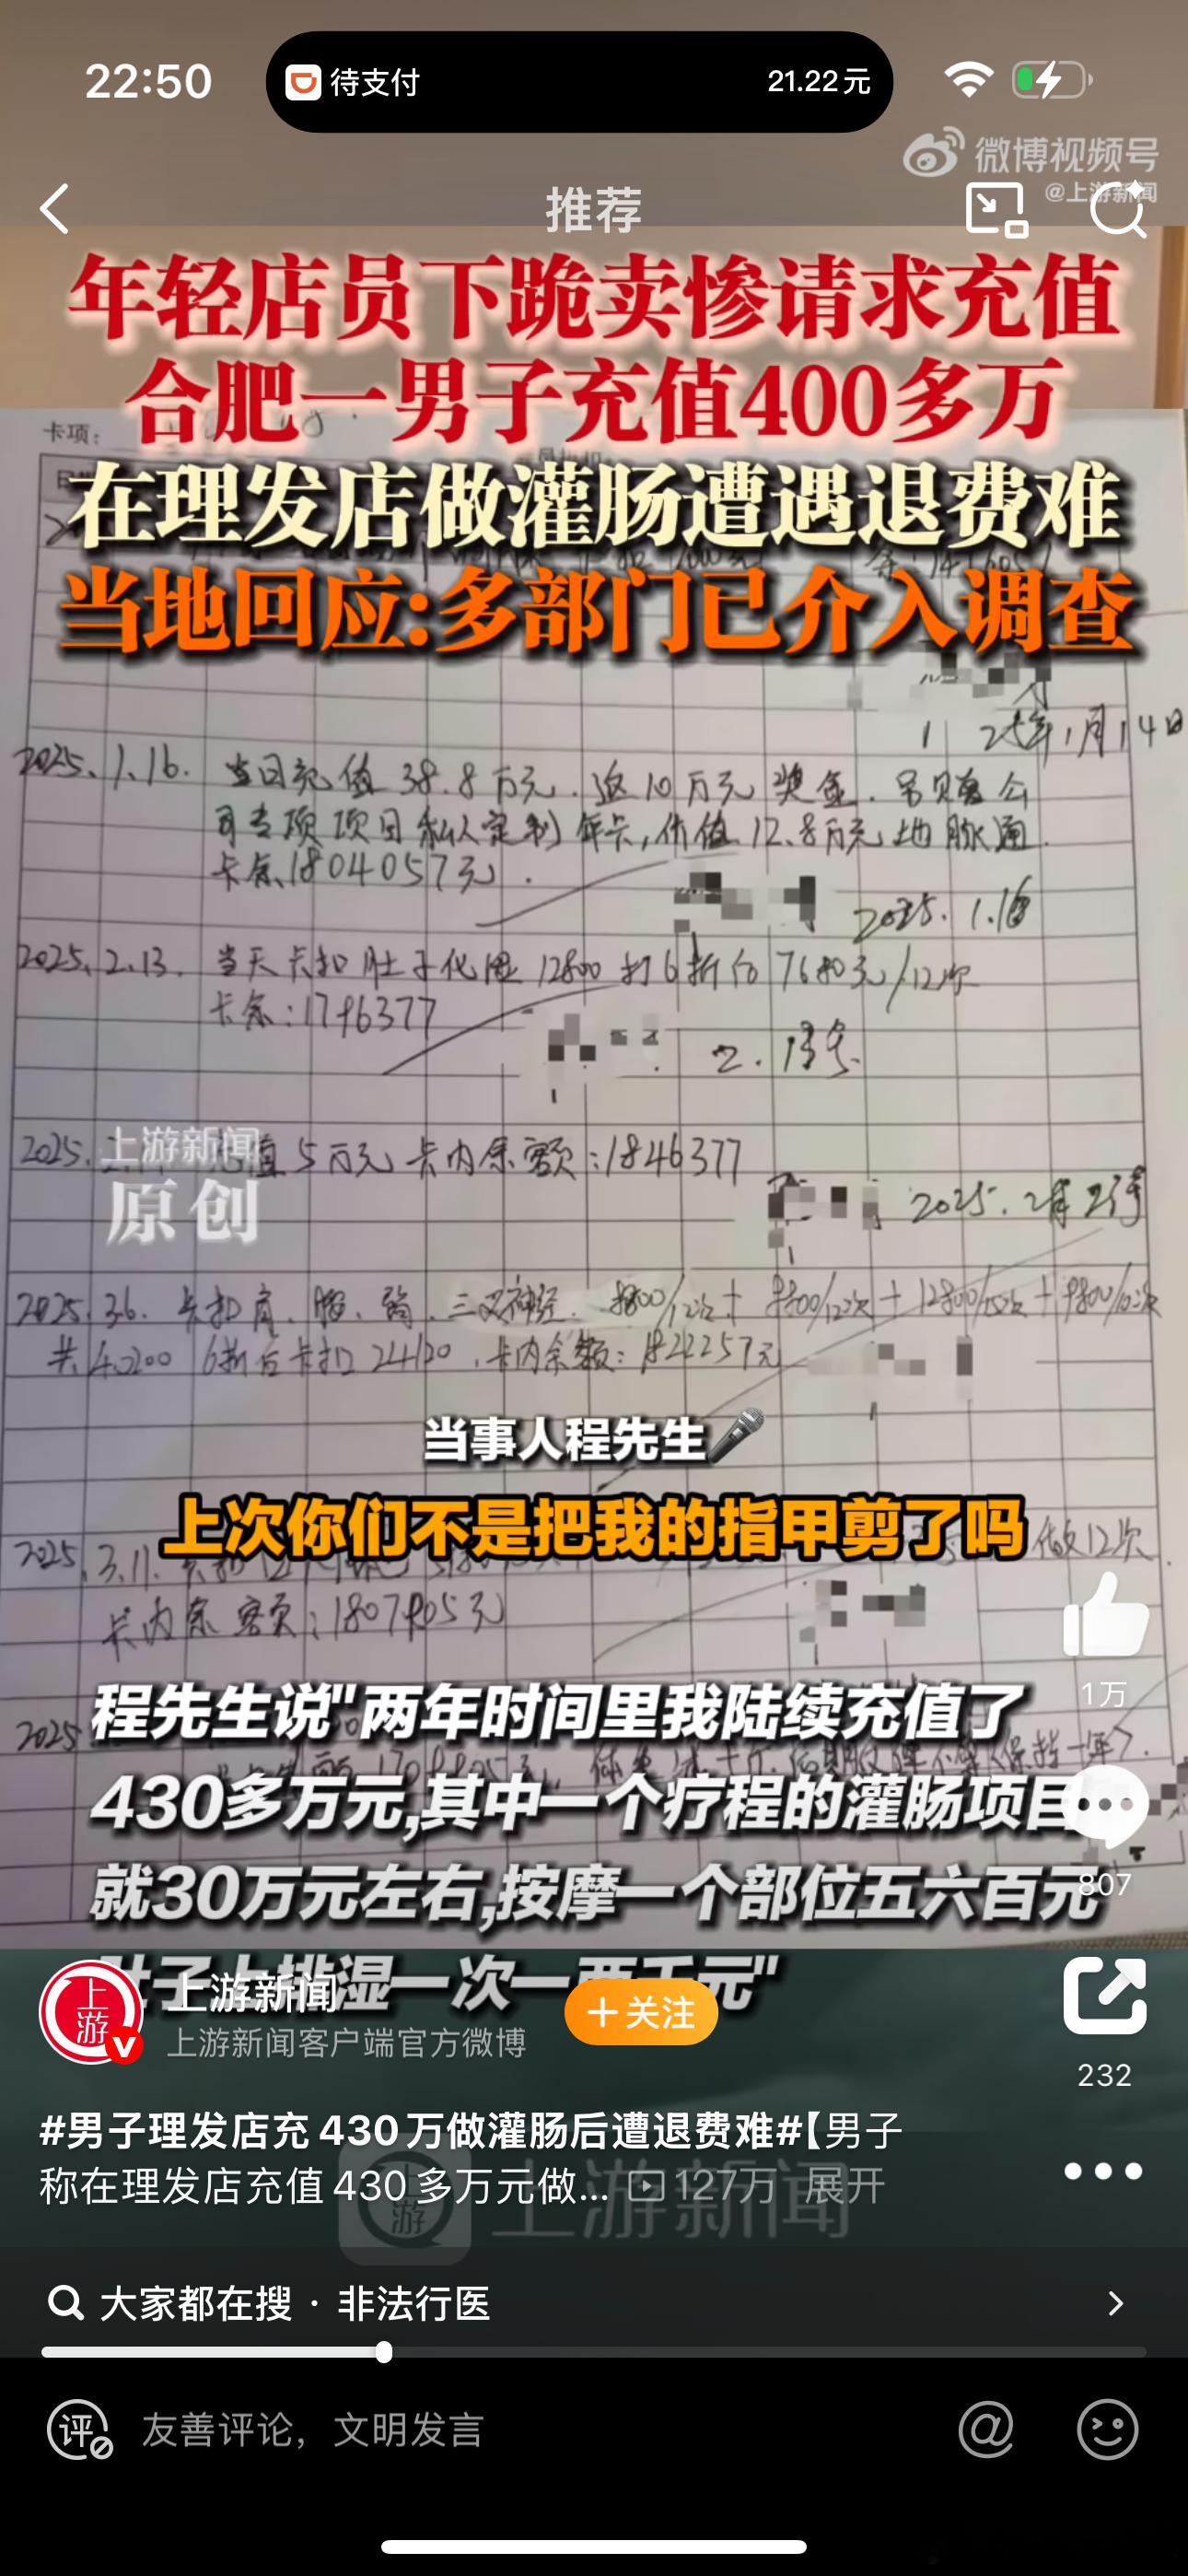 22:50
待支付
21.22元
微博视频号
@上游新闻
推荐
年轻店员下跪卖惨请求充值
合肥一男子充值400多万
卡项：
在理发店做灌肠遭遇退费难
当地回应:多部门已介入调查
25年1月14日
2025.1.16. 当日充值38.8万元.返10万元奖金.
项目私人定制年卡,价值12.8万元地脉通.
卡余1804057元.
2025.1.16
2025.2.13. 当天卡扣肚子化湿12800打6折后7680元/12次
卡余:1796377
上游新闻
原创
2025. 5万元卡内余额:1846377
2025.
2025.3.6. 卡扣肩、三叉神经
共40200 6折后卡扣24120.卡内余额:1822257元
当事人程先生
上次你们不是把我的指甲剪了吗
2025.3.11. 做12次.
卡内余额:
1万
程先生说"两年时间里我陆续充值了
2025
430多万元,其中一个疗程的灌肠项目
就30万元左右,按摩一个部位五六百元
807
肚子上排湿一次一两千元"
上游
上游新闻
上游新闻客户端官方微博
+关注
232
#男子理发店充430万做灌肠后遭退费难#【男子
称在理发店充值430多万元做... 127万 展开
上游
上游新闻
大家都在搜 · 非法行医
评
友善评论，文明发言